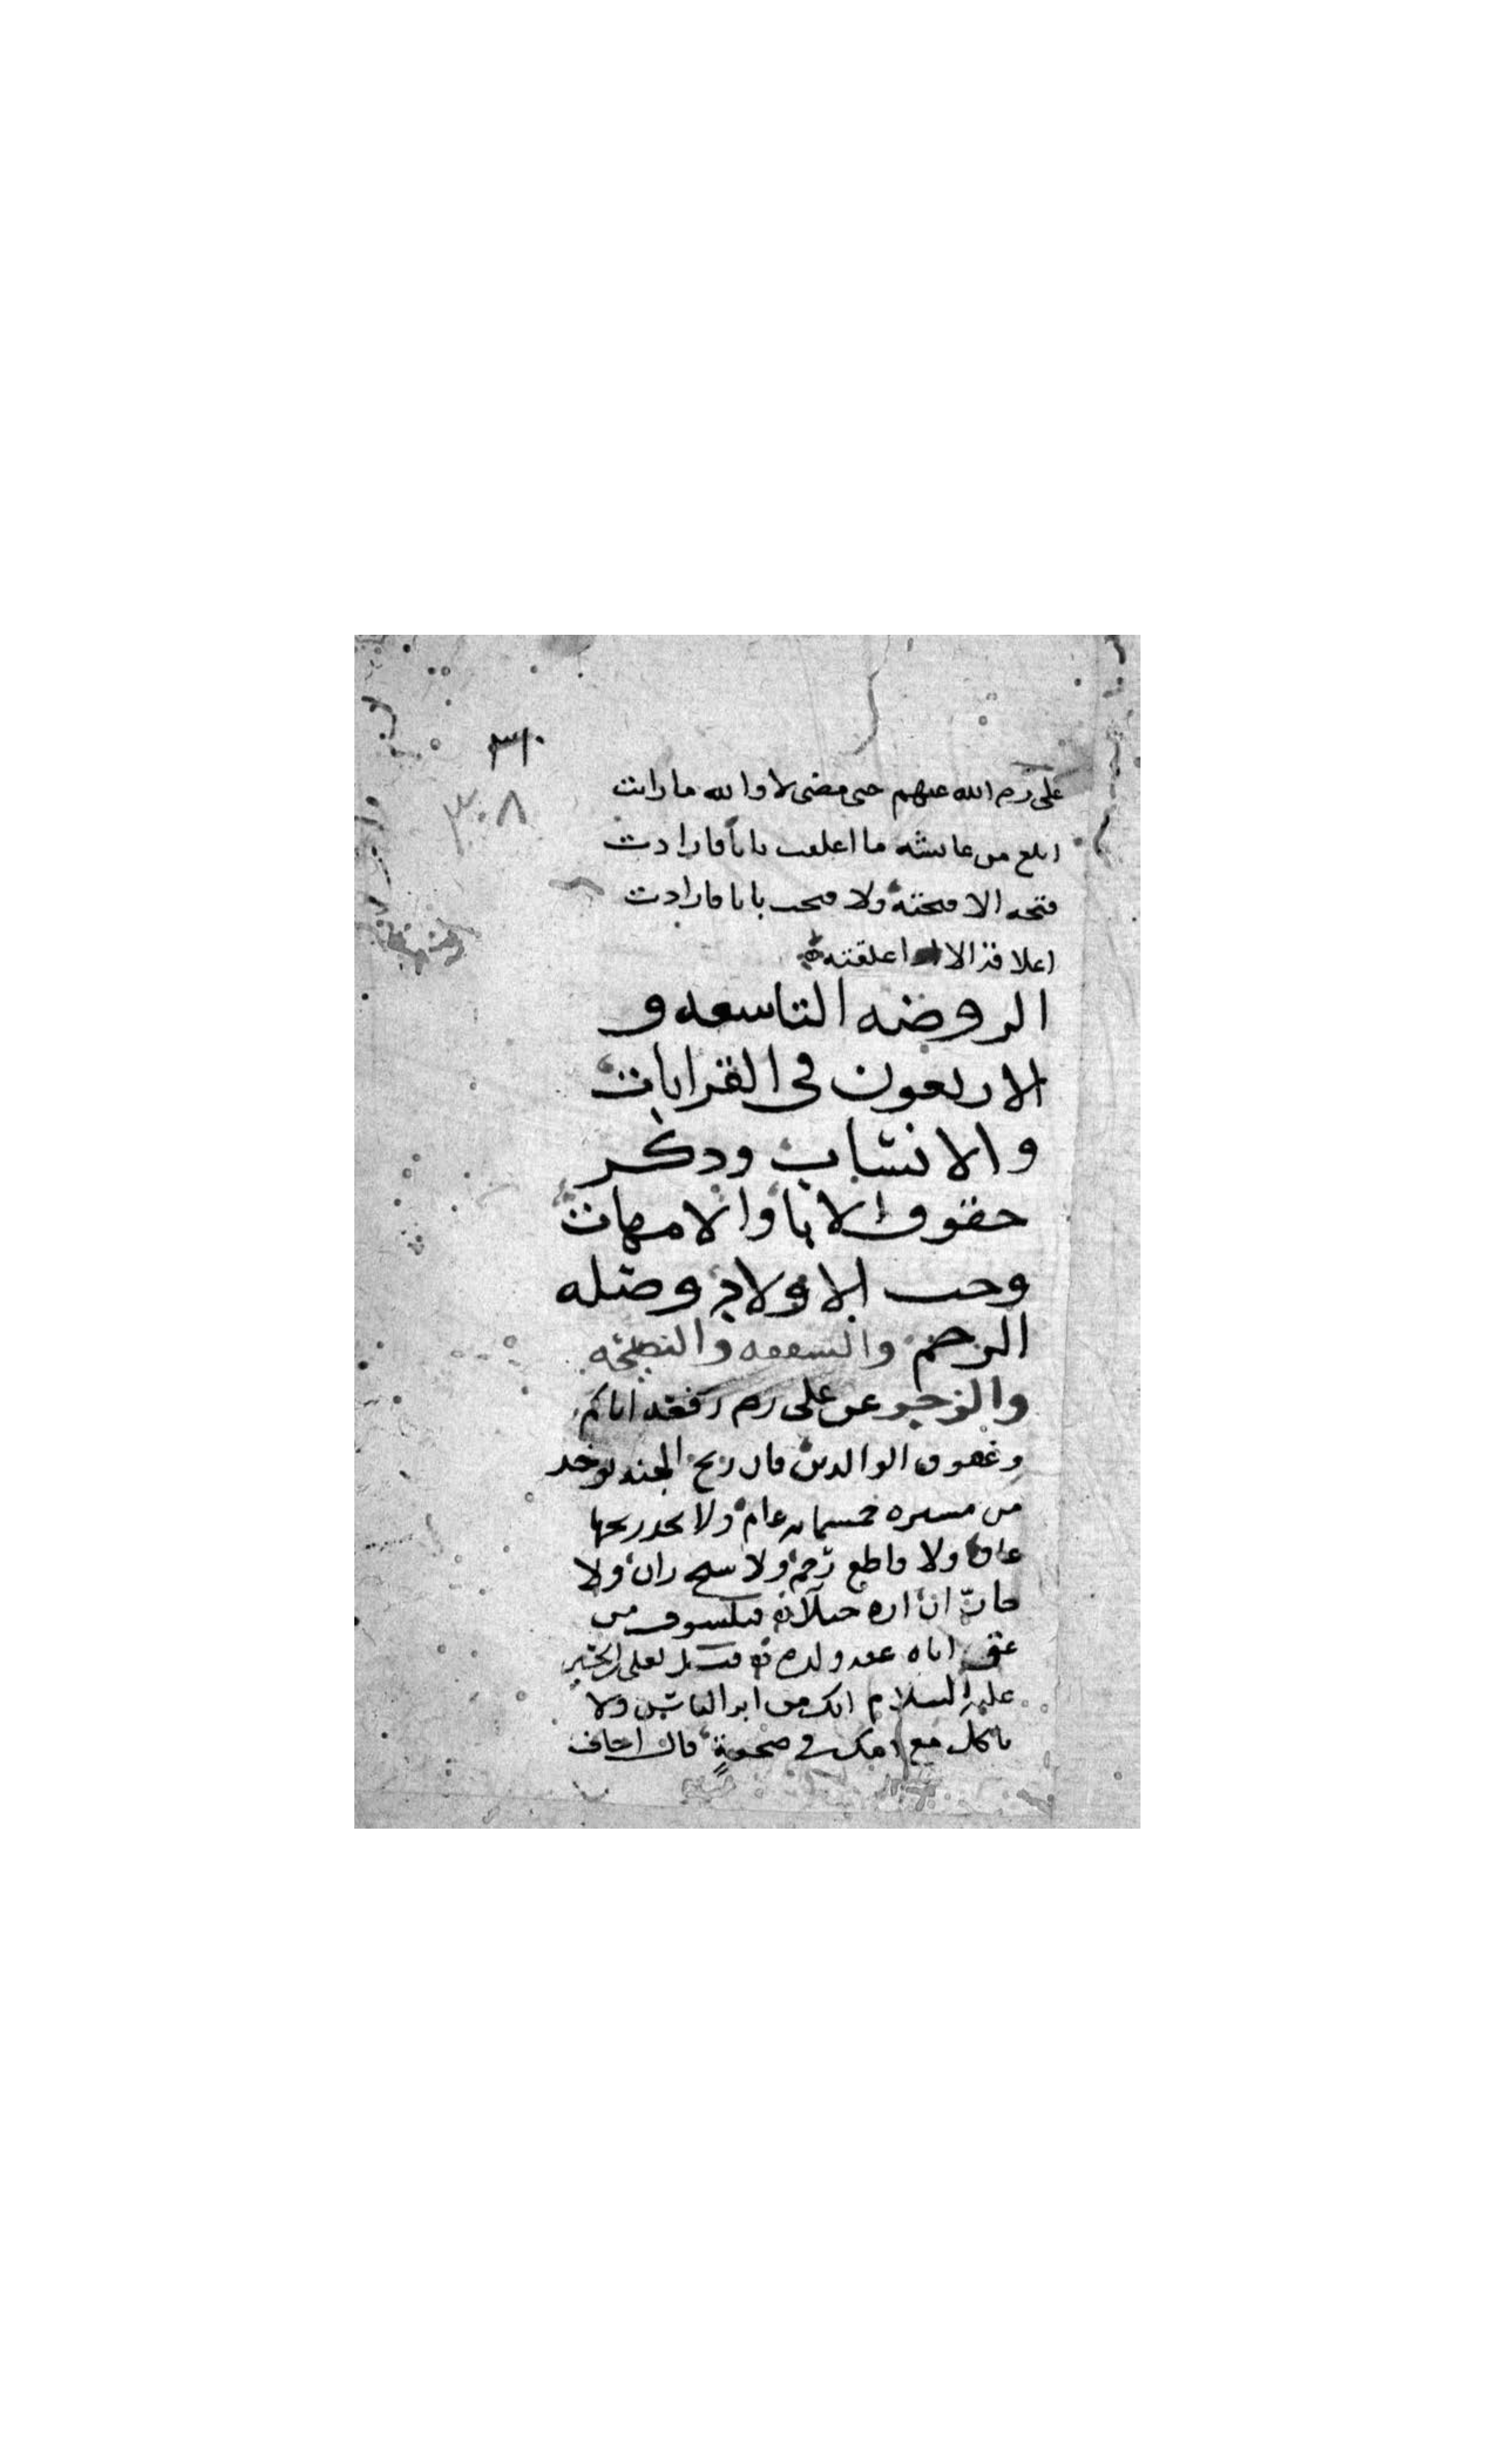 ٣١٠
٣٠٨
على رضى الله عنهم حتى مضى لا والله ما رايت
ابلغ من عائشه ما اغلقت بابا فارادت
فتحه الا فتحته ولا فتحت بابا فارادت
اغلاقه الا اغلقته
الروضه التاسعه و
الاربعون فى القرابات
والانساب وذكر
حقوق الابا والامهات
وحب الاولاد وصله
الرحم والشفقه والنصيحه
والزجر عن على رضى رفعه اياكم
وعقوق الوالدين فان ريح الجنه توخد
من مسيره خمسمايه عام ولا يجد ريحها
عاق ولا قاطع رحم ولا شيخ زان ولا
جارّ ازاره خيلآ فيلسوف من
عق اباه عقه ولده قيل لعلى بن الحسين
عليه السلام انك من ابر الناس ولا
تاكل مع امك فى صحفةٍ قال اخاف